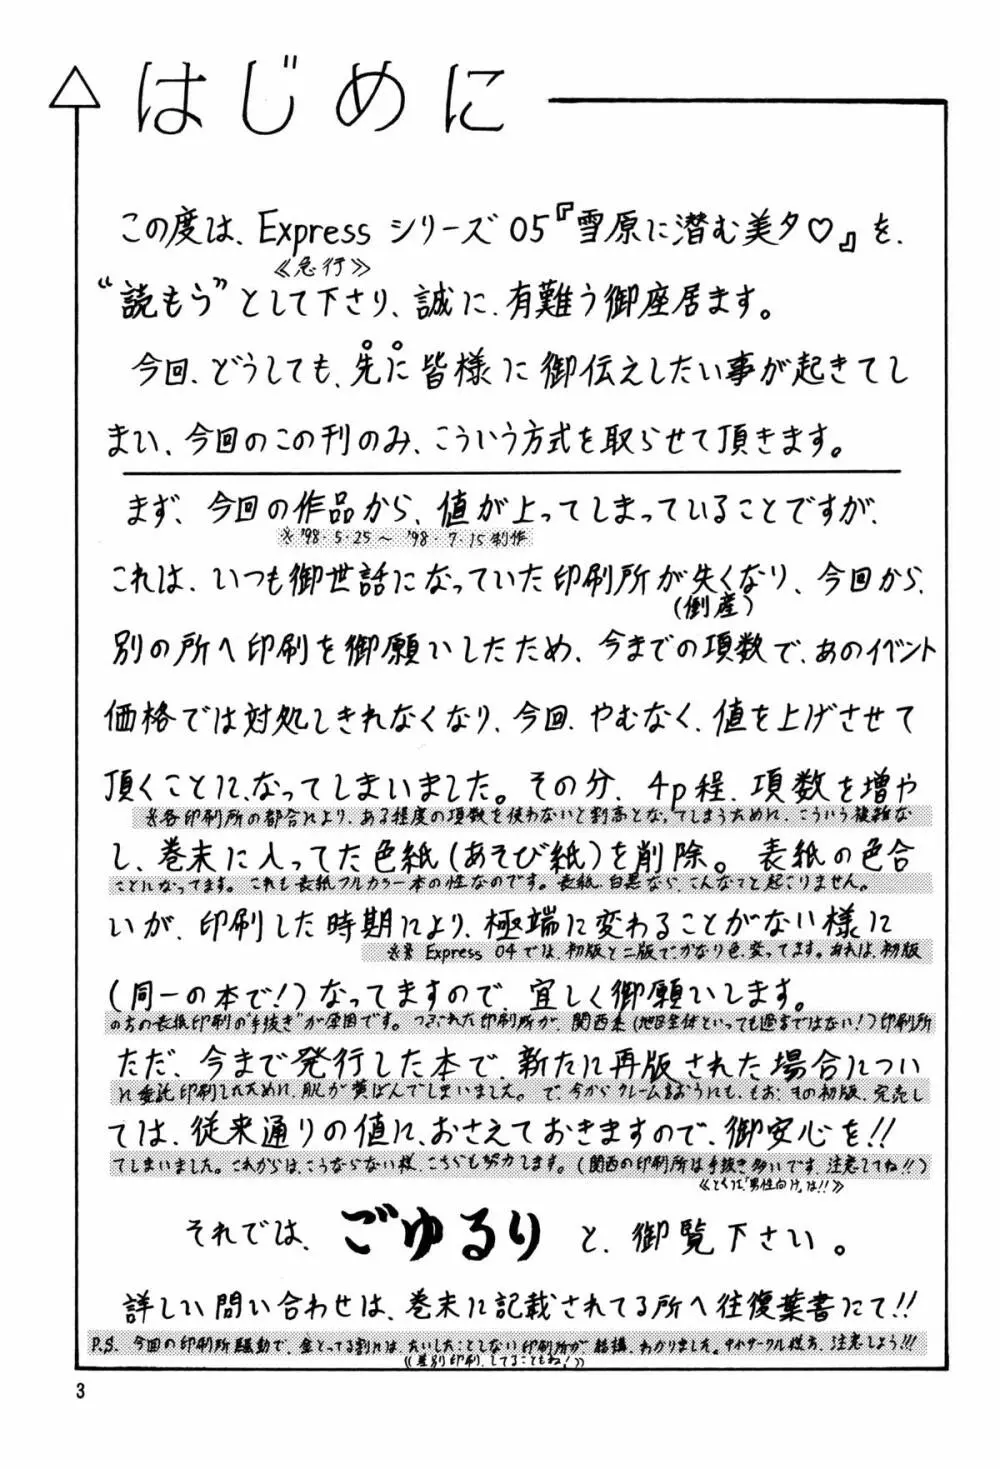 はじめに
この度は、Express シリーズ 05『雪原に潜む美夕♡』を、
≪急行≫
“読もう”として下さり、誠に、有難う御座居ます。
今回、どうしても、先に皆様に御伝えしたい事が起きてし
まい、今回のこの刊のみ、こういう方式を取らせて頂きます。
まず、今回の作品から、値が上ってしまっていることですが、
※'98・5・25～'98・7・15制作
これは、いつも御世話になっていた印刷所が失くなり、今回から、
(倒産)
別の所へ印刷を御願いしたため、今までの項数で、あのイベント
価格では対処しきれなくなり、今回、やむなく、値を上げさせて
頂くことに、なってしまいました。その分、4p程、項数を増や
※各印刷所の都合により、ある程度の項数を使わないと割高となってしまうために、こういう複雑な
し、巻末に入ってた色紙(あそび紙)を削除。表紙の色合
ことになってます。これも表紙フルカラー本の性なのです。表紙、白黒なら、こんなこと起こりません。
いが、印刷した時期により、極端に変わることがない様に
※※ Express 04では、初版と二版で、かなり色、変ってます。あれは、初版
(同一の本で!)なってますので、宜しく御願いします。
のちの表紙印刷の“手抜き”が原因です。つぶれた印刷所が、関西系(地区全体といっても過言ではない!)印刷所
ただ、今まで発行した本で、新たに再版された場合につい
に委託印刷したために、肌が黄ばんでしまいました。で、今からクレームをおうにも、もお、その初版、完売し
ては、従来通りの値に、おさえておきますので、御安心を!!
てしまいました。これからは、こうならない様、こちらも努力します。(関西の印刷所は手抜き多いです、注意してね!!)
≪とくに「男性向け」は!!≫
それでは、ごゆるりと、御覧下さい。
詳しい問い合わせは、巻末に記載されてる所へ往復葉書にて!!
P.S. 今回の印刷所騒動で、金とってる割には、たいしたことしない印刷所が、結構、わかりました。サークル様方、注意しよう!!!
≪差別印刷、してることもね!≫
3